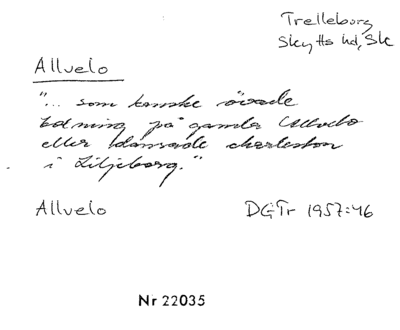 Trelleborg
Skytts hd, Sk
Allvelo
"... som kanske övade
tidning på gamla Allvelo
eller dansade charleston
i Liljeborg."
Allvelo
DGTr 1957:46
Nr 22035